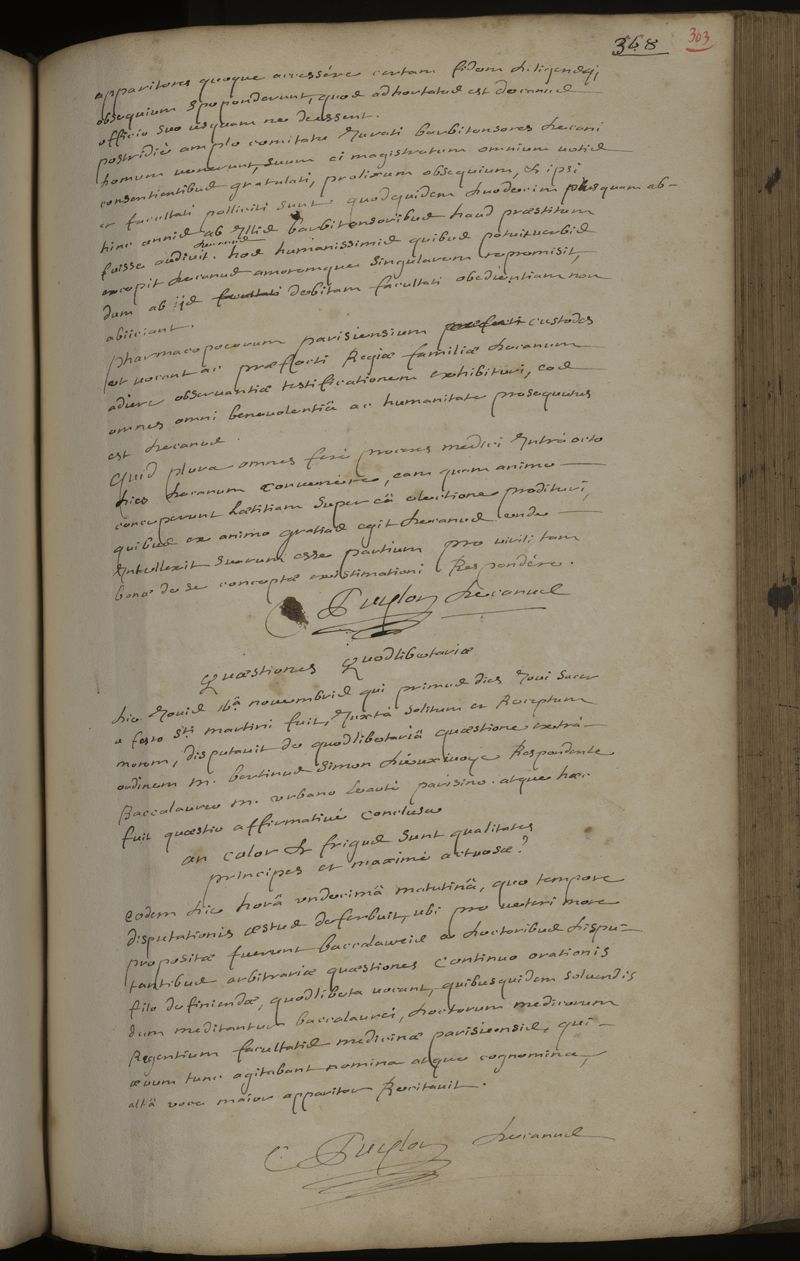 368 303
apparitores quoque accessére certam fidem diligensq;
obsequium spoponderunt, quos adhortatus est decanus
officio suo usquam ne deessent.
postridiè amplo comitatu Jurati barbitonsores decani
domum venerunt, suum ei magistratum omnium votis
consentientibus gratulati, prolixum obsequium, et ipsi
et facultati polliciti sunt quodquidem duodecim plusquam ab-
hinc annis ab illis barbitonsoribus haud præstitum
fuisse audivit. hos decanus humanissimis quibus potuit verbis
excepit decanus amoremque singularem repromisit,
dum ab ijs facultati debitam facultati obedientiam non
abiiciant.
Pharmacopoeorum parisiensium præfecti custodes
ut vocant ac præfecti Regiæ familiæ decanum
adiere observantiæ testificationem exhibituri, eos
omnes omni benevolentiâ ac humanitate prosequutus
est decanus.
Quid plura omnes ferè proceres medici Intrà octo
dies decanum convenére, eam quam animo
conceperunt lætitiam super eâ electione prodituri,
quibus ex animo gratias egit decanus unde
Intellexit suarum esse partium pro virili tam
bonæ de se conceptæ existimationi Respondére.
C Puylon decanus
Quæstiones Quodlibetariæ
die Jovis 16â novembris qui primus dies Jovi sacer
a festo Sti martini fuit, Juxtà solitum et Receptum
morem, disputavit de quodlibetariâ quæstione extrà-
ordinem M. bertinus Simon dieuxivoye Respondente
Baccalaureo M. urbano Leauté parisino. atque hæc
fuit quæstio affirmativè conclusa
an calor et frigus sunt qualitates
principes et maximè actuosæ?
Eodem die horâ undecimâ matutinâ, quo tempore
disputationis æstus deferbuit, ubi pro veteri more
propositæ fuerunt baccalaureis a doctoribus dispu=
tantibus arbitrariæ quæstiones continuo orationis
filo definiendæ, quodlibeta vocant, quibusquidem solvendis
dum meditantur baccalaurei, doctorum medicorum
Regentium facultatis medicinæ parisiensis, qui
ævum tunc agitabant nomina atque cognomina,
altâ voce maior apparitor Recitavit.
C Puylon decanus